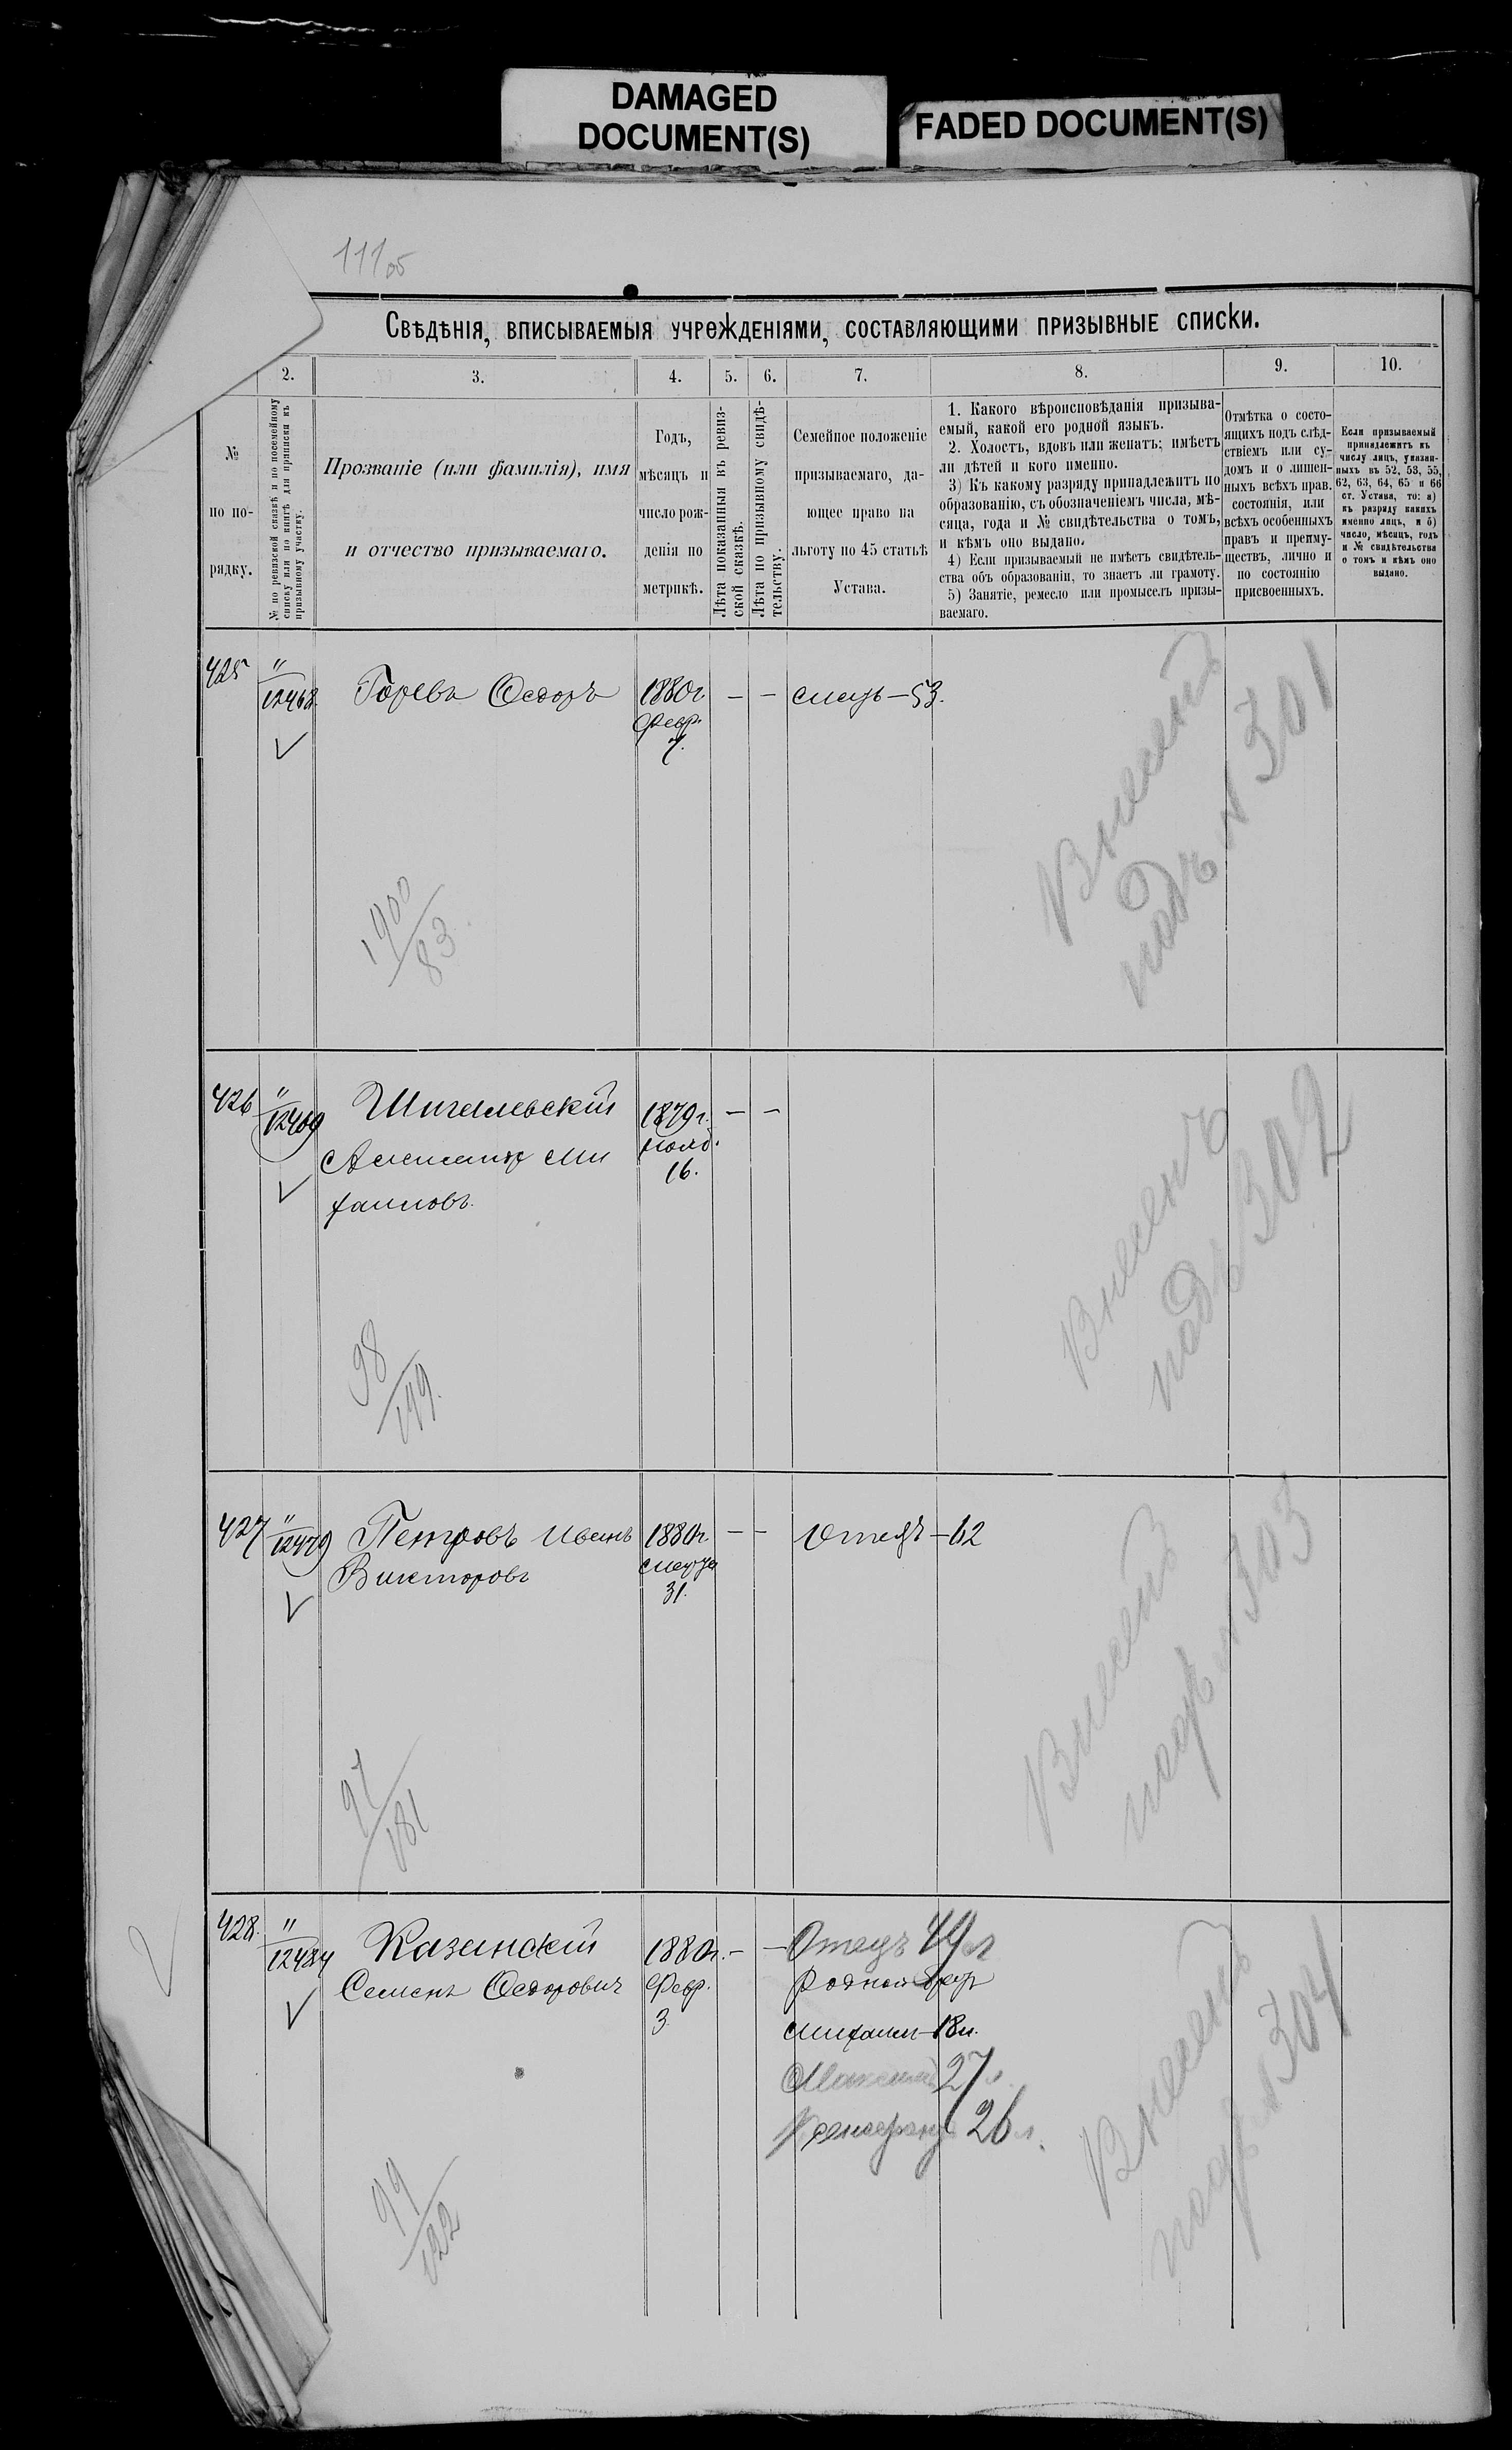 DAMAGED
DOCUMENT(S)
FADED DOCUMENT(S)
111/05
Свѣдѣнія, вписываемыя учрежденіями, составляющими призывные списки.
2.
3.
4.
5.
6.
7.
8.
9.
10.
№
по по-
рядку.
№ по ревизской сказкѣ и по посемейному
списку или по книгѣ для приписки къ
призывному участку.
Прозваніе (или фамилія), имя
и отчество призываемаго.
Годъ,
мѣсяцъ и
число рож-
денія по
метрикѣ.
Лѣта показанныя въ ревиз-
ской сказкѣ.
Лѣта по призывному свидѣ-
тельству.
Семейное положеніе
призываемаго, да-
ющее право на
льготу по 45 статьѣ
Устава.
1. Какого вѣроисповѣданія призыва-
емый, какой его родной языкъ.
2. Холостъ, вдовъ или женатъ; имѣетъ
ли дѣтей и кого именно.
3) Къ какому разряду принадлежитъ по
образованію, съ обозначеніемъ числа, мѣ-
сяца, года и № свидѣтельства о томъ,
и кѣмъ оно выдано.
4) Если призываемый не имѣетъ свидѣтель-
ства объ образованіи, то знаетъ ли грамоту.
5) Занятіе, ремесло или промыселъ призы-
ваемаго.
Отмѣтка о состо-
ящихъ подъ слѣд-
ствіемъ или су-
домъ и о лишен-
ныхъ всѣхъ прав.
состоянія, или
всѣхъ особенныхъ
правъ и преиму-
ществъ, лично и
по состоянію
присвоенныхъ.
Если призываемый
принадлежитъ къ
числу лицъ, указан-
ныхъ въ 52, 53, 55,
62, 63, 64, 65 и 66
ст. Устава, то: а)
къ разряду какихъ
именно лицъ, и б)
число, мѣсяцъ, годъ
и № свидѣтельства
о томъ и кѣмъ оно
выдано.
425
"
12468.
Горевъ Ѳедоръ
1880г
Февр.
7.
— —
—53.
Внесенъ
подъ № 301
1900/83.
426
"
12409
Шигелевскій
Александр Ми
хаиловъ.
1879г.
Нояб.
16.
— —
Внесенъ
подъ 302
98/199.
427
"
12479
Петровъ Иванъ
Викторовъ
1880г.
Марта
31.
— —
Отецъ —62
Внесенъ
подъ № 303
97/181
428.
"
12484
Казанскій
Семенъ Ѳедоровичъ
1880г.
Февр.
3.
— —
Отецъ 49 л
Родной брат
Михаил—18 л.
Максим 27 л.
Александр 26 л.
Внесенъ
подъ № 304
99/122